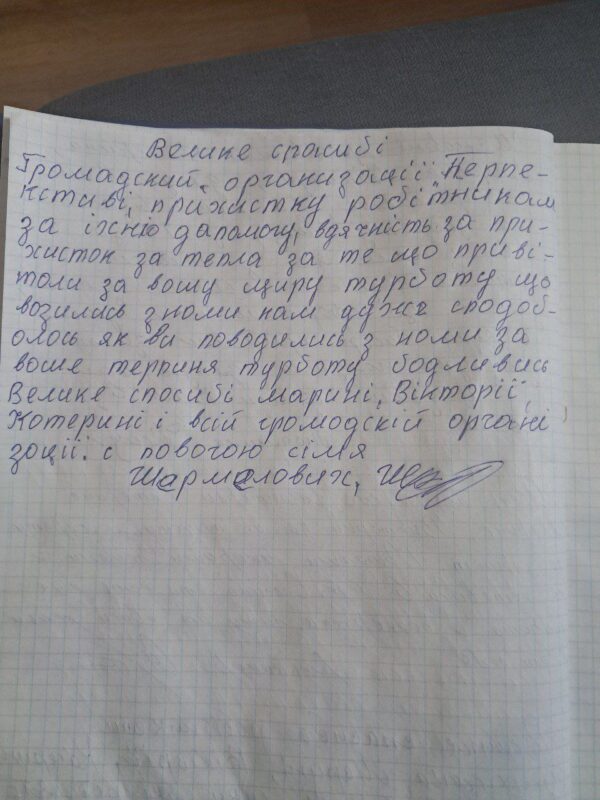 Велике спасибі
Громадский "организації "Перпе-
кстиві, прихистку робітникам
за їхню дапомогу, вдячність за при-
хисток за тепла за те що приві-
тали за вашу щиру турботу що
возились з нами нам дуже сподоб-
олось як ви поводились з нами за
ваше терпиня турботу бодливись
Велике спосибі Марині, Вікторії,
Котерині і всій громадскій органі
зоції. с повогою сімя
Шармалових,